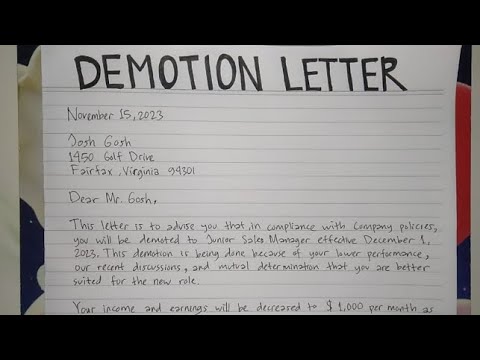 DEMOTION LETTER
November 15, 2023
Josh Gosh
1450 Golf Drive
Fairfax, Virginia 94301
Dear Mr. Gosh,
This letter is to advise you that, in compliance with Company policies,
you will be demoted to Junior Sales Manager effective December 1,
2023. This demotion is being done because of your lower performance,
our recent discussions, and mutual determination that you are better
suited for the new role.
Your income and earnings will be decreased to $1,000 per month as